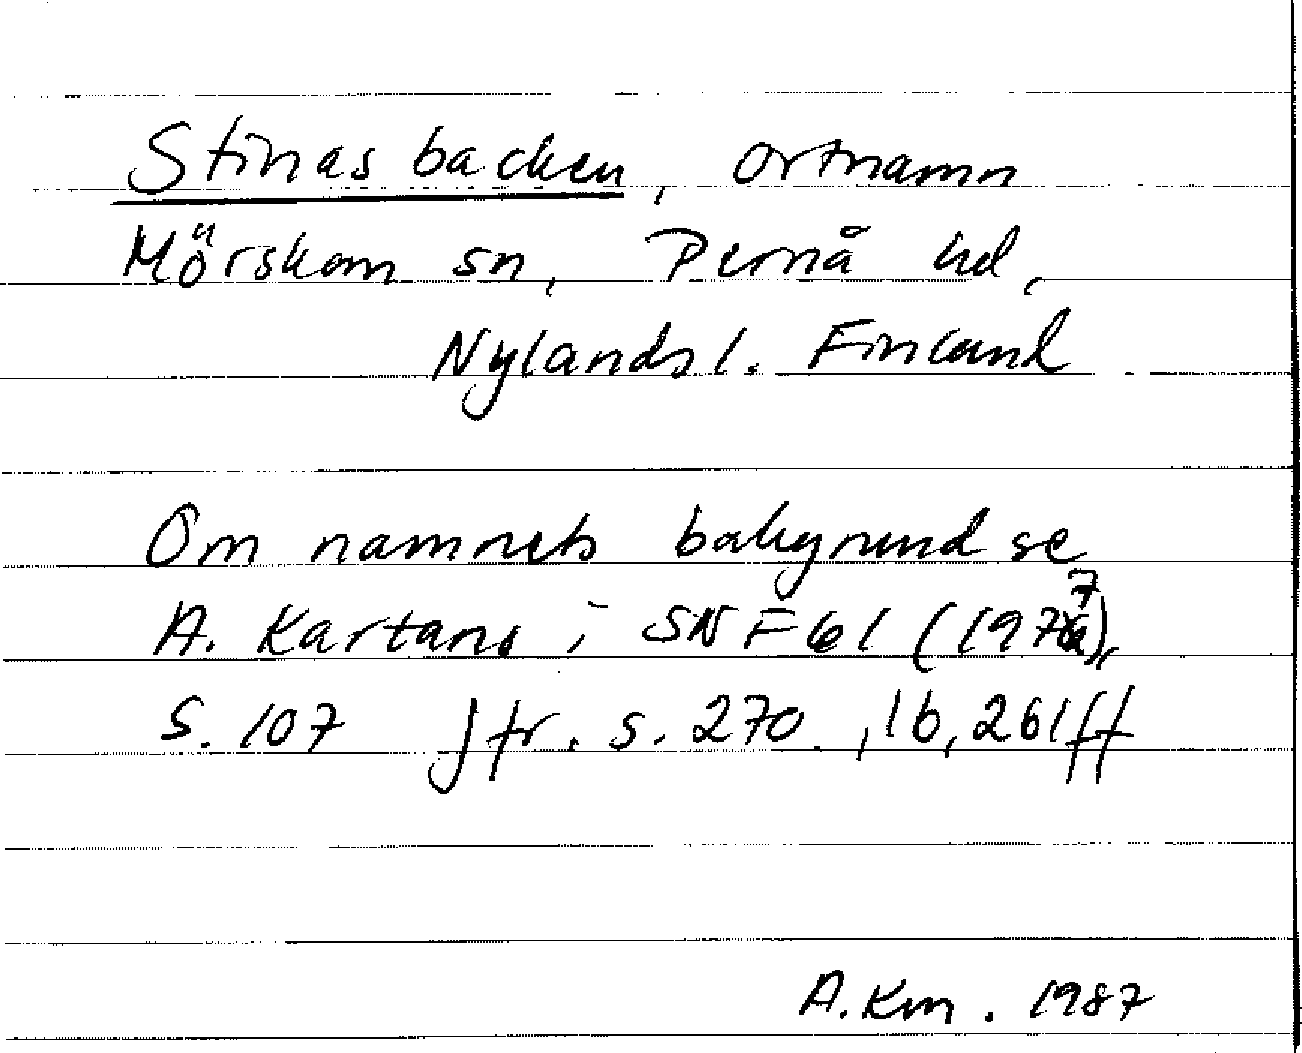 Stinas backen, ortnamn
Mörskom sn, Pernå hd,
Nylands l. Finland
Om namnets bakgrund se
A. Kartano i SNF 61 (1977),
s. 107 Jfr. s. 270, 16, 261 ff
A. Km. 1987